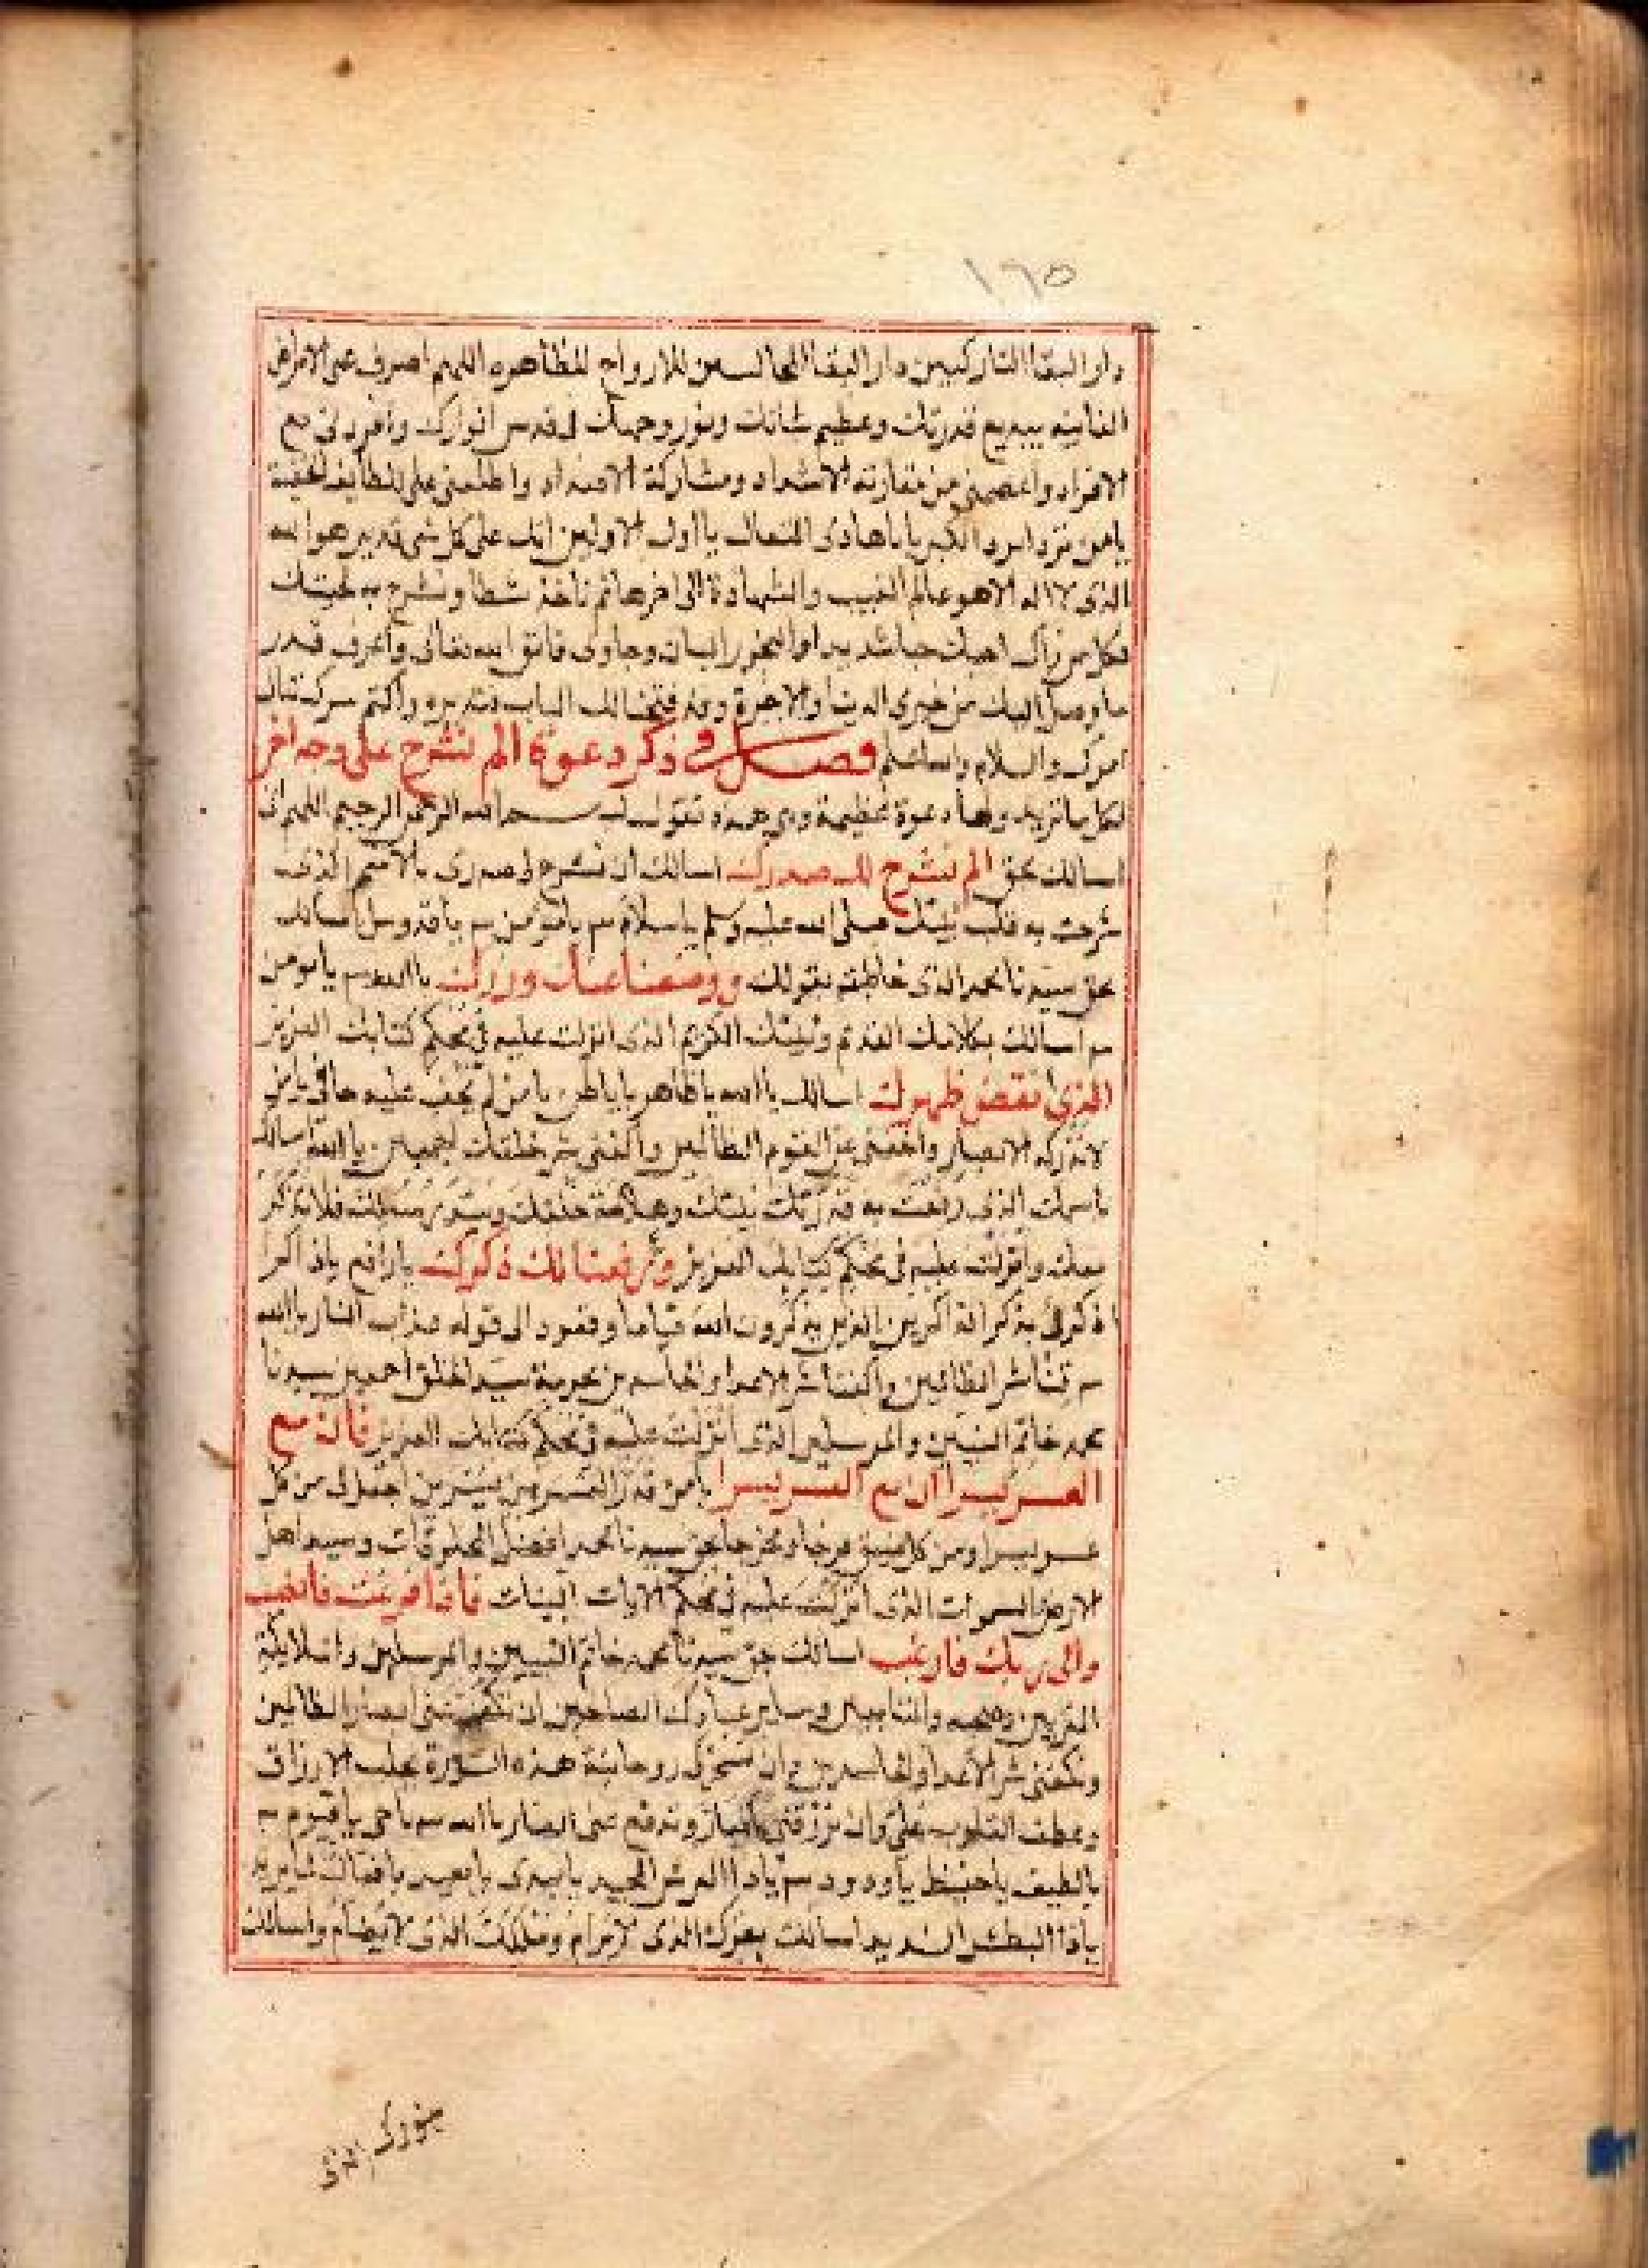 ١٦٥
دار البقا التاركين دار البقا المجالسين للارواح الطاهره اللهم اصرف عني الامراض
الفانيه ببديع قدرتك وعظيم شانك وبنور وجهك في قدس انوارك وافردني مع
الافراد واعصمني من مقارنه الاشداد ومشاركة الاضداد واطلعني على لطايف الخفية
يامن تردا برد الكبريا ياهادي الضال يااول الاولين انك على كل شي قدير هو الله
الذي لا اله الا هو عالم الغيب والشهادة الى اخرها ثم تاخذ مشطا وتشرح به لحيتك
فكل من رآك احبك حبا شديدا والبخور لبان وجاوي فاتق الله تعالى واعرف قدر
ما وصل اليك من خيري الدنيا والاخرة وقد فتحنا لك الباب فتدبره واكتم سرك تنال
امرك والسلام والله اعلم فصل في ذكر دعوة الم نشرح على وجه اخر
لكل ما تريد ولها دعوة عظيمة وهي هذه تقول بسم الله الرحمن الرحيم اللهم اني
اسالك بحق الم نشرح لك صدرك اسالك ان تشرح لي صدري بالاسم الذي
شرحت به قلب نبيك صلى الله عليه وسلم ياسلام يامومن ياقدوس اسالك
بحق سيدنا محمد الذي خاطبته بقولك ووضعنا عنك وزرك ياالله يامومن
اسالك بكلامك القديم ونبيك الكريم الذي انزلت عليه في محكم كتابك العزيز
الذي انقض ظهرك اسالك ياالله ياظاهر ياباطن يامن لم يخف عليه خافي يامن
لاتدركه الابصار واخفني عن القوم الظالمين واكفني شر خلقك اجمعين ياالله اسالك
باسمك الذي رفعت به قدر نبيك
معك وانزلت عليه في محكم كتابك العزيز ورفعنا لك ذكرك يارافع ياذاكر
اذكرني بذكرالذاكرين الذين يذكرون الله قياما وقعودا الى قوله عذاب النار ياالله
قنا شر الظالمين واكفنا شر الاعدا والحاسدين بحرمة سيد الخلق اجمعين سيدنا
محمد خاتم النبيين والمرسلين الذي انزلت عليه في محكم كتابك العزيز فان مع
العسر يسرا ان مع العسر يسرا يامن قدر اجعل لي من كل
عسر يسرا ومن كل ضيق فرجا ومخرجا بحق سيدنا محمد افضل المخلوقات وسيد اهل
الارض والسموات الذي انزلت عليه في محكم الايات البينات فاذا فرغت فانصب
والى ربك فارغب اسالك بحق سيدنا محمد خاتم النبيين والمرسلين والملايكة
المقربين وصحبه والتابعين وساير عبادك الصالحين ان تكف عني ابصار الظالمين
وتكفني شر الاعدا والحاسدين وان تسخر لي روحانية هذه السورة بجلب الارزاق
وعطف القلوب علي وان ترزقني وتدفع عني ياالله ياحي ياقيوم
يالطيف ياحفيظ ياودود ياذا العرش المجيد يامبدي يامعيد يافعال لما يريد
ياذا البطش الشديد اسالك بعزك الذي لا يرام وملكك الذي لا يضام واسالك
بنورك الذي